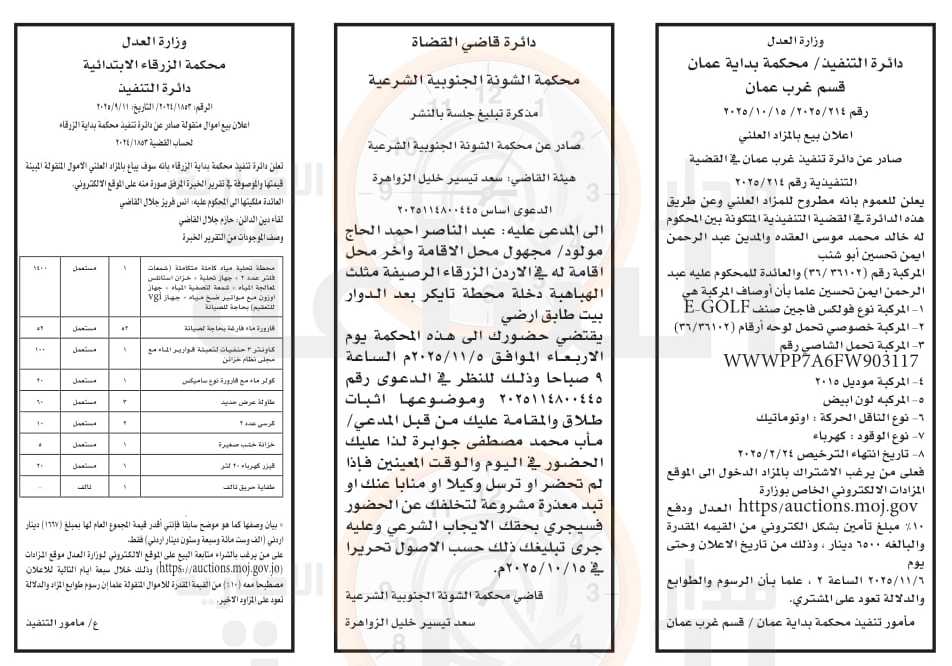 وزارة العدل
دائرة التنفيذ/ محكمة بداية عمان
قسم غرب عمان
رقم ٢٠٢٥/٢١٤/ ٢٠٢٥/١٠/١٥
اعلان بيع بالمزاد العلني
صادر عن دائرة تنفيذ غرب عمان في القضية
التنفيذية رقم ٢٠٢٥/٢١٤
يعلن للعموم بانه مطروح للمزاد العلني وعن طريق
هذه الدائرة في القضية التنفيذية المتكونة بين المحكوم
له خالد محمد موسى العقده والمدين عبد الرحمن
ايمن تحسين أبو شنب
المركبة رقم (٣٦١٠٢ /٣٦) والعائدة للمحكوم عليه عبد
الرحمن ايمن تحسين علما بأن أوصاف المركبة هي
١- المركبة نوع فولكس فاجين صنف E-GOLF
٢- المركبة خصوصي تحمل لوحه أرقام (٣٦/٣٦١٠٢)
٣- المركبة تحمل الشاصي رقم
WWWPP7A6FW903117
٤- المركبة موديل ٢٠١٥
٥- المركبه لون ابيض
٦- نوع الناقل الحركة : اوتوماتيك
٧- نوع الوقود : كهرباء
٨- تاريخ انتهاء الترخيص ٢٠٢٥/٢/٢٤
فعلى من يرغب الاشتراك بالمزاد الدخول الى الموقع
المزادات الالكتروني الخاص بوزارة
https/auctions.moj.gov العدل ودفع
١٠٪ مبلغ تأمين بشكل الكتروني من القيمه المقدرة
والبالغه ٦٥٠٠ دينار ، وذلك من تاريخ الاعلان وحتى
يوم
٢٠٢٥/١١/٦ الساعة ٢ ، علما بأن الرسوم والطوابع
والدلالة تعود على المشتري.
مأمور تنفيذ محكمة بداية عمان / قسم غرب عمان
دائرة قاضي القضاة
محكمة الشونة الجنوبية الشرعية
مذكرة تبليغ جلسة بالنشر
صادر عن محكمة الشونة الجنوبية الشرعية
هيئة القاضي: سعد تيسير خليل الزواهرة
الدعوى اساس ٢٠٢٥١١٤٨٠٠٤٤٥
الى المدعى عليه: عبد الناصر احمد الحاج
مولود/ مجهول محل الاقامة واخر محل
اقامة له في الاردن الزرقاء الرصيفة مثلث
الهباهبة دخلة محطة تايكر بعد الدوار
بيت طابق ارضي
يقتضي حضورك الى هذه المحكمة يوم
الاربعاء الموافق ٢٠٢٥/١١/٥م الساعة
٩ صباحا وذلك للنظر في الدعوى رقم
٢٠٢٥١١٤٨٠٠٤٤٥ وموضوعها اثبات
طلاق والمقامة عليك من قبل المدعي/
مأب محمد مصطفى جوابرة لذا عليك
الحضور في اليوم والوقت المعينين فإذا
لم تحضر او ترسل وكيلا او منابا عنك او
تبد معذرة مشروعة لتخلفك عن الحضور
فسيجري بحقك الايجاب الشرعي وعليه
جرى تبليغك ذلك حسب الاصول تحريرا
في ٢٠٢٥/١٠/١٥م.
قاضي محكمة الشونة الجنوبية الشرعية
سعد تيسير خليل الزواهرة
وزارة العدل
محكمة الزرقاء الابتدائية
دائرة التنفيذ
الرقم: ٢٠٢٤/١٨٥٣/ التاريخ: ٢٠٢٥/٩/١١
اعلان بيع اموال منقولة صادر عن دائرة تنفيذ محكمة بداية الزرقاء
لحساب القضية ٢٠٢٤/١٨٥٣
تعلن دائرة تنفيذ محكمة بداية الزرقاء بانه سوف يباع بالمزاد العلني الاموال المنقولة المبينة
قيمتها والموصوفة في تقرير الخبرة المرفق صورة منه على الموقع الالكتروني.
العائدة ملكيتها الى المحكوم عليه: انس فريز جلال القاضي
لقاء دين الدائن: حازم جلال القاضي
وصف الموجودات من التقرير الخبرة
محطة تحلية مياه كاملة متكاملة (شمعات
فلتر عدد ٢ + جهاز تحلية + خزان استانلس
لمعالجة المياه + شمعة لتصفية المياه + جهاز
اوزون مع مواتير ضخ مياه + جهاز vgi
للتعقيم) بحاجة للصيانة ١ مستعمل ١٤٠٠
قارورة ماء فارغة بحاجة لصيانة ٥٢ مستعمل ٥٢
كاونتر ٣ حنفيات لتعبئة قوارير الماء مع
مجلى نظام خزائن ١ مستعمل ١٠٠
كولر ماء مع قارورة نوع ساميكس ١ مستعمل ٢٠
طاولة عرض حديد ٣ مستعمل ٦٠
كرسي عدد ٢ ٢ مستعمل ١٠
خزانة خشب صغيرة ١ مستعمل ٥
قيزر كهرباء ٢٠ لتر ١ مستعمل ٢٠
طفاية حريق تالف ١ تالف -
× بيان وصفها كما هو موضح سابقا فإنني أقدر قيمة المجموع العام لها بمبلغ (١٦٦٧) دينار
اردني (الف وست مائة وسبعة وستون دينار اردني) فقط.
على من يرغب بالشراء متابعة البيع على الموقع الالكتروني لوزارة العدل موقع المزادات
(https://auctions.moj.gov.jo) وذلك خلال سبعة ايام التالية للاعلان،
مصطحبا معه (١٠٪) من القيمة المقدرة للاموال المنقولة علما إن رسوم طوابع والدلالة
تعود على المزاود الاخير.
ع/ مامور التنفيذ